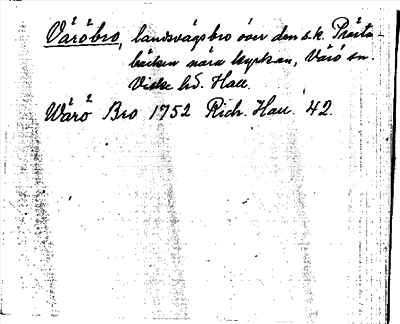 Väröbro, landsvägsbro över den s.k. Präста-
bäcken nära kyrkan, Värö sn.
Viske hd. Hall.
Wärö Bro 1752 Rich. Hall. 42.